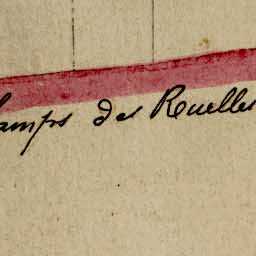 amps des Ruelles